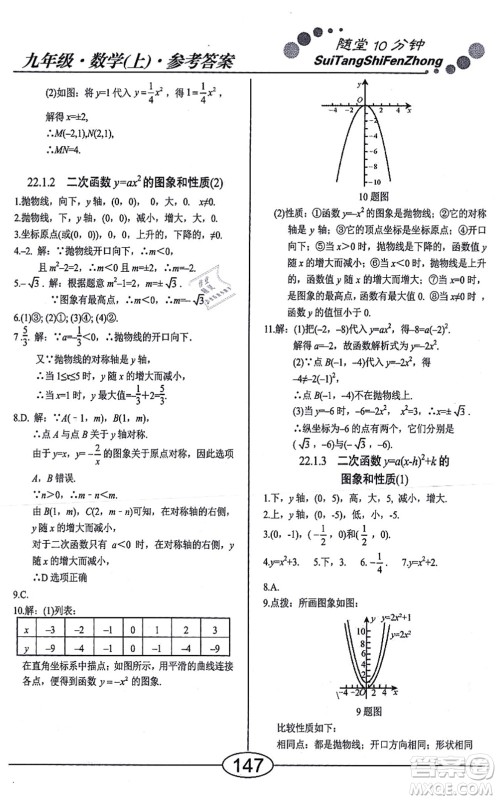 九年级·数学(上)·参考答案
随堂10分钟
SuiTangShiFenZhong
(2)如图：将 y=1 代入 y=1/4x²，
解得 x=±2,
∴M(-2,1),N(2,1)
∴MN=4.
22.1.2 二次函数 y=ax² 的图象和性质(2)
1.抛物线，向下，y轴，(0, 0)，0，大，0.
2.抛物线，下，y轴，(0, 0)，减小，增大，大，0.
3.坐标原点(或(0, 0))，0，上升的，下降的，≠0.
4.-2. 解：∵抛物线开口向下，∴m<0
且 m²-2=2，∴m=-2.
5.-√3. 解：根据题意 m²-1=2，∴m=±√3.
∵图象有最高点，∴m<0，∴m=-√3.
6.(1)③；(2)①；(3)④；(4)②.
7. 5/3. 解：∵a=-1/3，∴抛物线的开口向下.
又∵抛物线的对称轴是 y轴，
∴当 1≤x≤5 时，y随 x 的增大而减小，
∴当 x=1 时，y最大值=-1/3+2=5/3.
8.D. 解：∵A(-1, m)，B(1, m)，
∴点 A 与点 B 关于 y 轴对称.
由于 y=x，y=-2/x 的图象关于原点对称，因此选项
A、B 错误.
∵n>0，∴m-n<m.
由 B(1, m)，C(2, m-n)可知，在对称轴的右侧，
y 随 x 的增大而减小，
对于二次函数只有 a<0 时，在对称轴的右侧，
y 随 x 的增大而减小，
∴D 选项正确.
9.C.
10.解：(1)列表：
x -3 -2 -1 0 1 2 3
y -9 -4 -1 0 -1 -4 -9
在直角坐标系中描点；如图，用平滑的曲线连接
各点，便得到函数 y=-x² 的图象.
10题图
(2)性质：①函数 y=-x² 的图象是抛物线；②它的对
称轴是 y轴；③它的顶点坐标是(0, 0)；④它的开
口向下；⑤当 x>0 时，抛物线是下降的，函数值 y
随 x 的增大而减小，当 x<0 时，抛物线是上升的，
函数值 y 随 x 的增大而增大；⑥当 x=0 时，函
数值 y 最大值是0.
11.解：(1)把(-2，-8)代入得-8=a(-2)².
解得 a=-2，故函数解析式为 y=-2x².
(2)点 B(-1，-4)代入得
-4≠-2(-1)²
∴点 B(-1，-4)不在此抛物线上.
(3)当 y=-6 时，-6=-2x²，x²=3，∴x=±√3，
∴纵坐标为-6 的点有两个，它们是(-√3，-6)，
(√3，-6).
22.1.3 二次函数 y=a(x-h)²+k 的
图象和性质(1)
1.下，y轴，(0，5)，高，大，5，增大，减小.
2.上，y轴，(0，-5)，低，小，-5，减小，增大.
3.(0，-1)，(-1/2，0)和(1/2，0).
4.y=x²+2. 5.下，3. 6.-1/4.
8.A.
9.点拨：所画图象如图：
y=2x²+1
y=2x²
9题图
比较性质如下：
相同点：都是抛物线；开口方向相同；形状相同
147